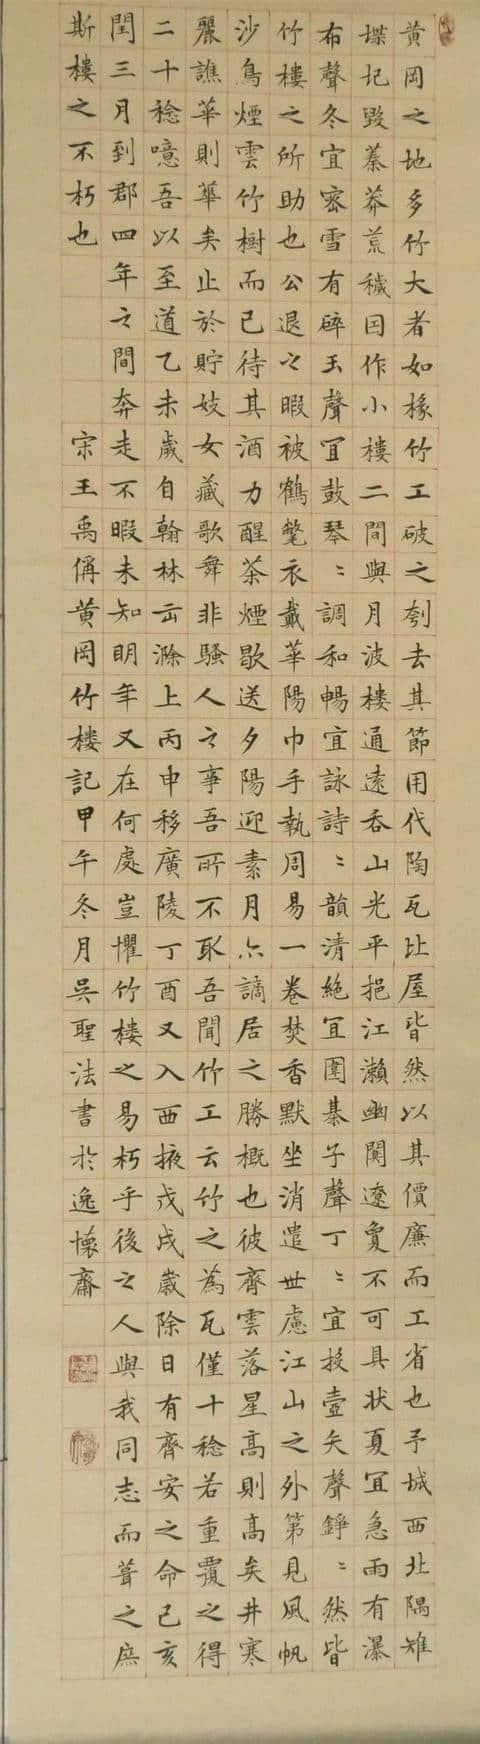 黃岡之地多竹大者如椽竹工破之刳去其節用代陶瓦比屋皆然以其價廉而工省也予城西北隅雉
堞圮毀蓁莽荒穢因作小樓二間與月波樓通遠吞山光平挹江瀨幽闃遼敻不可具狀夏宜急雨有瀑
布聲冬宜密雪有碎玉聲宜鼓琴〻調和暢宜詠詩〻韻清絶宜圍棊子聲丁〻宜投壺矢聲錚〻然皆
竹樓之所助也公退之暇被鶴氅衣戴華陽巾手執周易一卷焚香默坐消遣世慮江山之外第見風帆
沙鳥煙雲竹樹而已待其酒力醒茶煙歇送夕陽迎素月亦謫居之勝概也彼齊雲落星高則高矣井寒
麗譙華則華矣止於貯妓女藏歌舞非騷人之事吾所不取吾聞竹工云竹之為瓦僅十稔若重覆之得
二十稔噫吾以至道乙未歲自翰林出滁上丙申移廣陵丁酉又入西掖戊戌歲除日有齊安之命己亥
閏三月到郡四年之間奔走不暇未知明年又在何處豈懼竹樓之易朽乎後之人與我同志而葺之庶
斯樓之不朽也 宋王禹偁黃岡竹樓記甲午冬月吳聖法書於逸懷齋